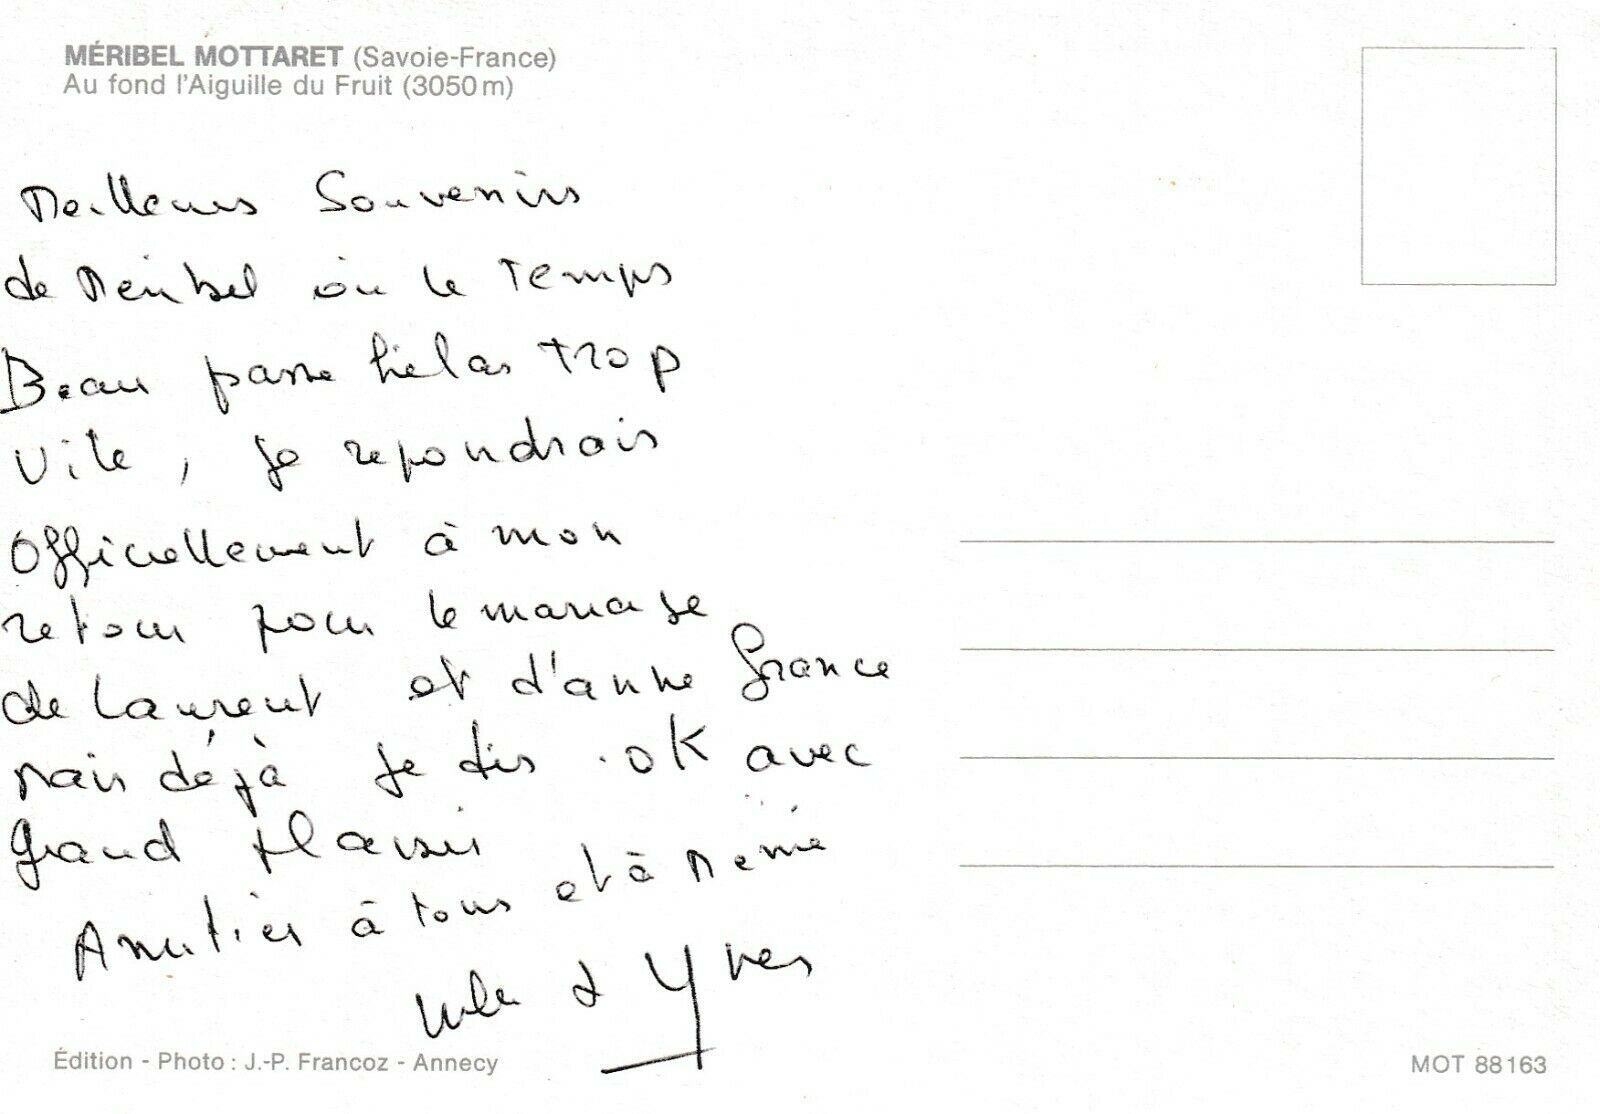 MÉRIBEL MOTTARET (Savoie-France)
Au fond l'Aiguille du Fruit (3050 m)
Meilleurs Souvenirs
de Meribel où le Temps
Beau passe hélas trop
vite, je repondrais
Officiellement à mon
retour pour le mariage
de Laurent et d'anne france
Mais déjà je dis ok avec
grand plaisir
Amitiés à tous et à Mémé
& Yves
Édition - Photo : J.-P. Francoz - Annecy
MOT 88163